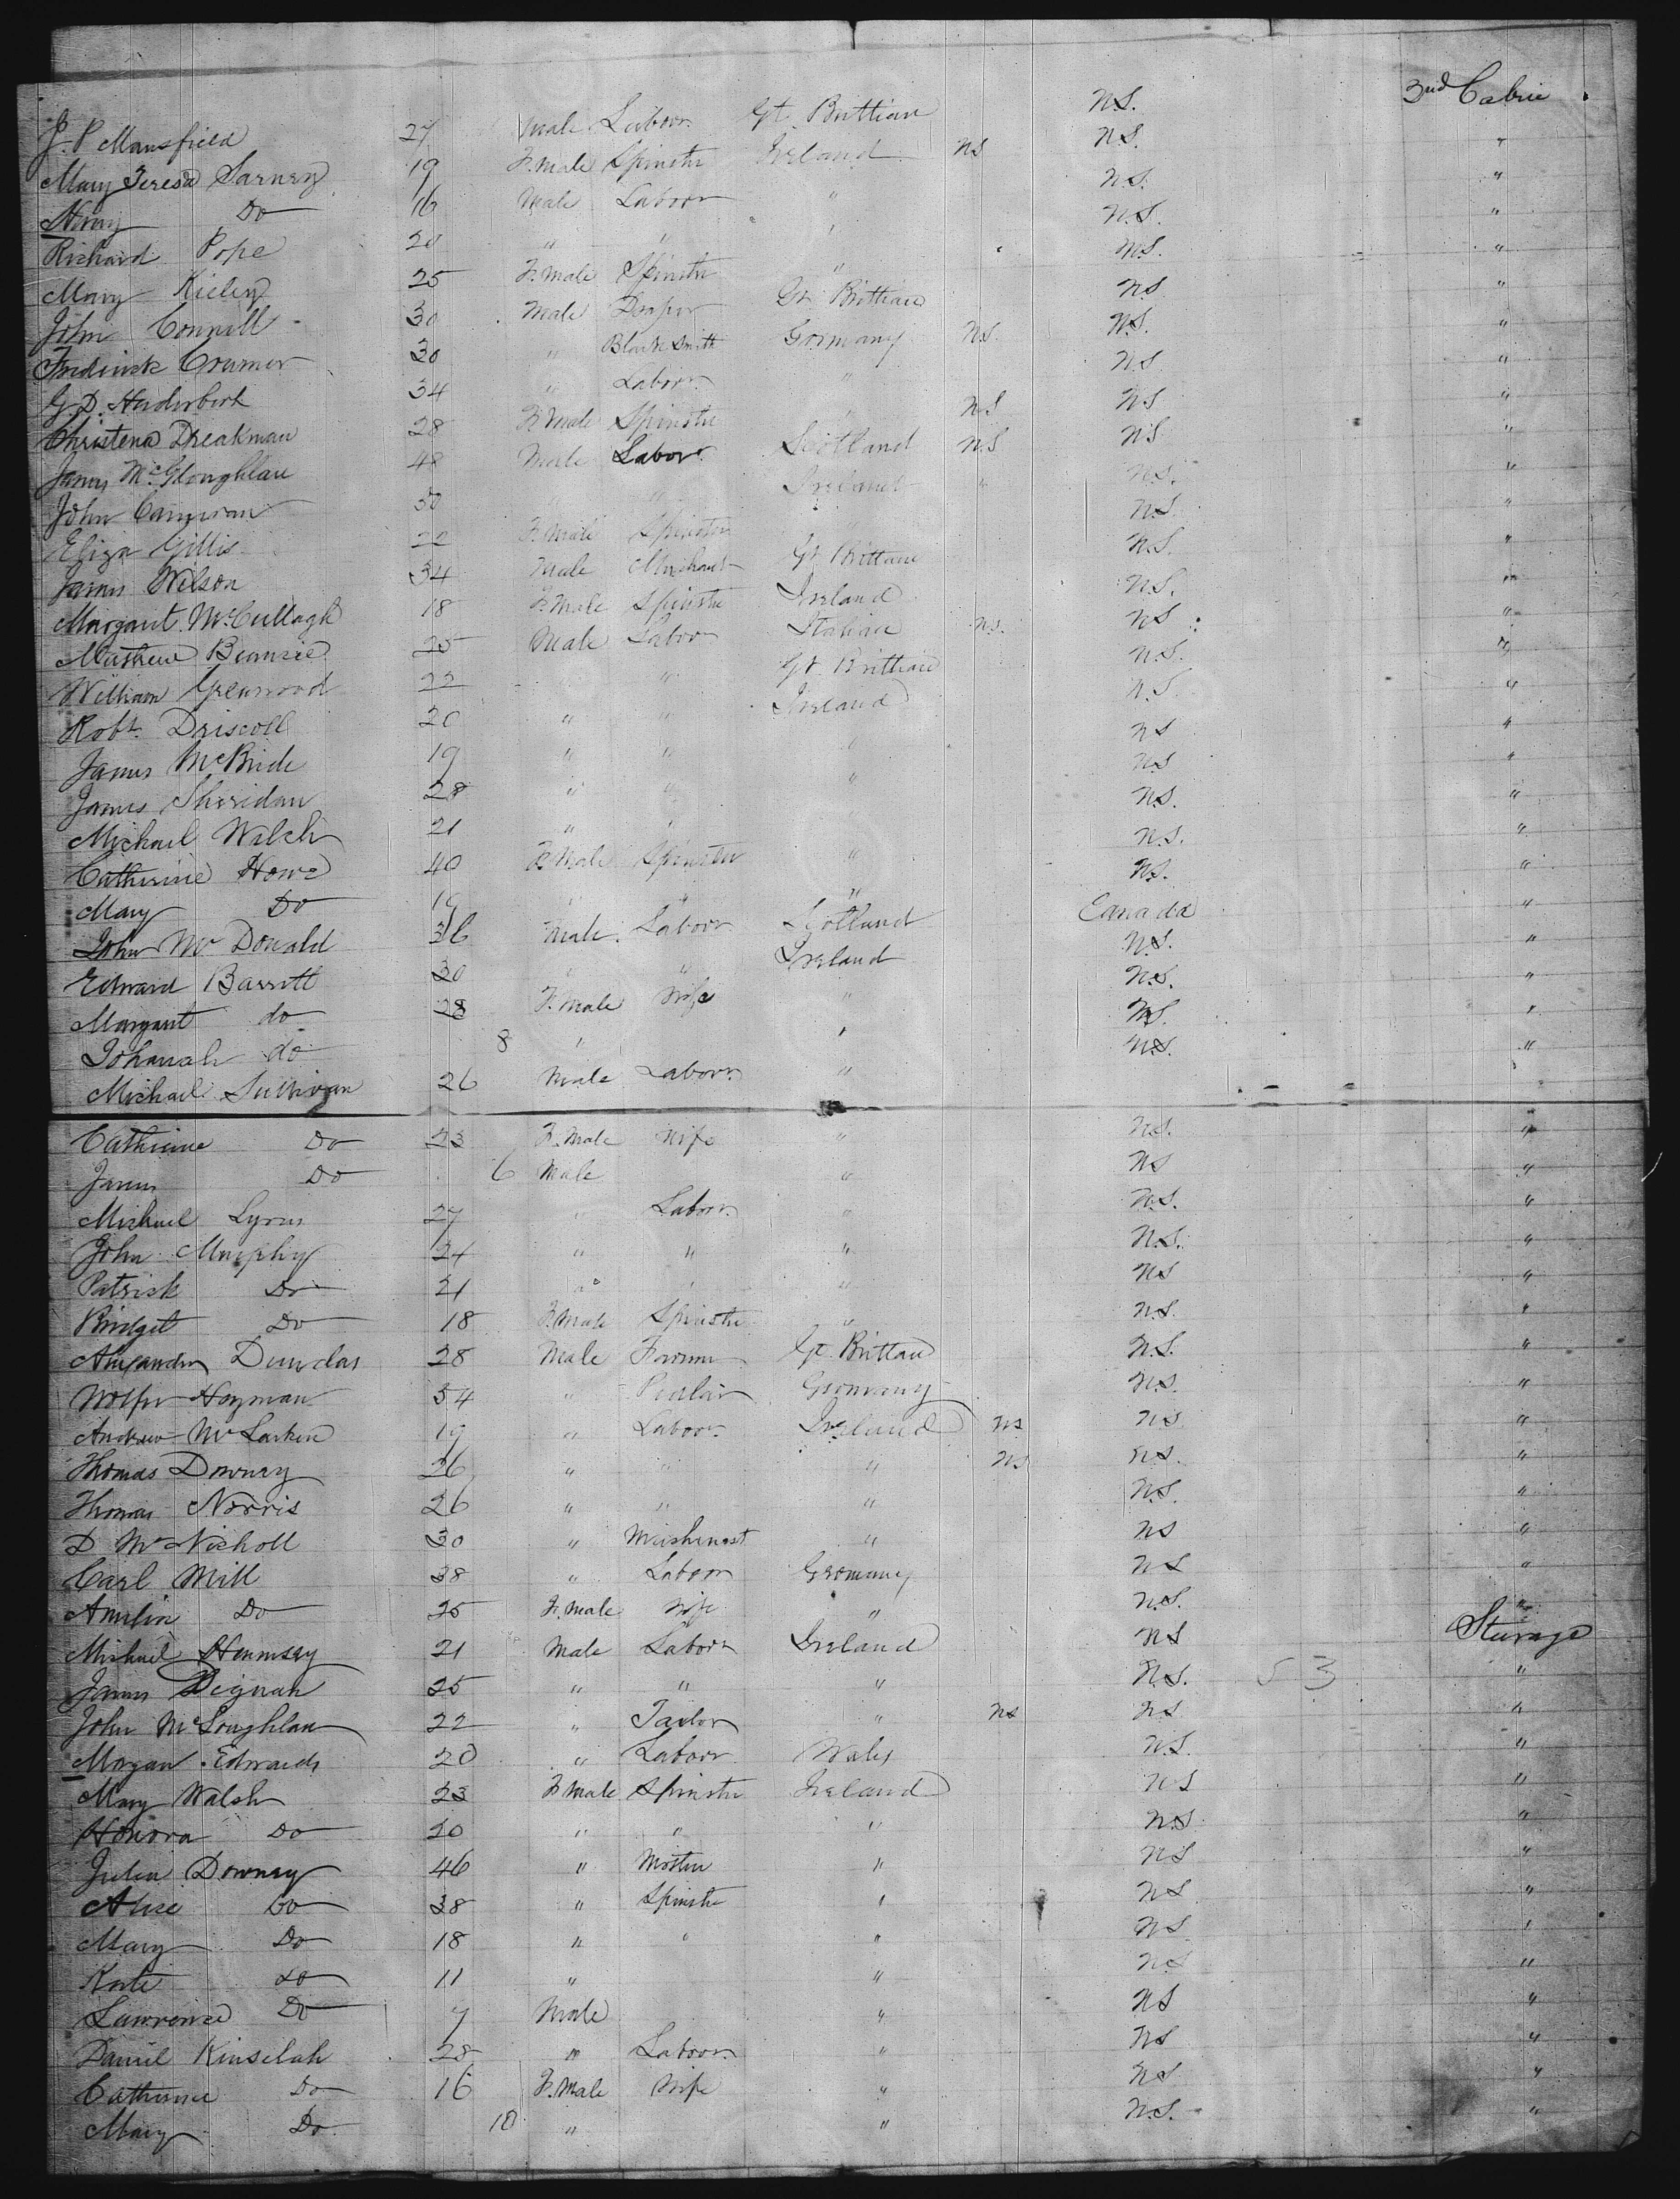 3rd Cabin
J. P Mansfield 27 Male Labor Gt. Brittian N.S.
Mary Teresa Sarney 19 F.male Spinster Ireland NS N.S. "
Do 16 Male Labor " N.S. "
Richard Pope 20 " " " N.S. "
Mary Kieley 25 F.male Spinster " N.S. "
John Connell 30 Male Draper Gt Brittian N.S "
Fredirick Cramer 30 " Black Smith Germany N.S. N.S. "
G. D. Harderbeck 34 " Labor " N.S "
Christena Dreakman 28 F.Male Spinster " N.S N.S "
James McGloughlan 48 Male Labor Scotland N.S N.S "
John Cameron 50 " " Ireland " N.S. "
Eliza Gillis 22 F.male Spinster N.S "
James Wilson 34 Male Merchant Gt Brittane N.S. "
Margaret McCullagh 18 F.male Spinster Ireland N.S. "
Mathew 25 Male Labor Italian N.S. N.S "
William Greenwood 22 " " Gt Brittian N.S. "
Robt. Driscoll 20 " " Ireland N.S. "
James McBride 19 " " " NS "
James Sheridan 28 " " " NS "
Michael Welch 21 " " " N.S. "
Catherine Howe 40 F.Male Spinster " N.S. "
Mary Do 19 " " " N.S. "
John Mc Donald 36 Male Labor Scotland Canada "
Edward Barrett 30 " " Ireland N.S. "
Margaret do 28 F.male Wife " N.S. "
Johanah do 8 " " N.S. "
Michael Sullivan 26 Male Labor " N.S. "
Catherine Do 23 F.Male Wife " N.S. "
James Do 6 Male " NS "
Michael Lyons 27 " Labor " N.S. "
John Murphy 24 " " " N.S. "
Patrick Do 21 " " " NS "
Bridget Do 18 F.Male Spinster " N.S. "
Alexander Dundas 28 Male Farmer Gt. Brittan N.S. "
Hoyman 34 " Pedlar Germany N.S. "
Andrew Mc Larken 19 " Labor Ireland NS NS "
Thomas Downey 26 " " " NS NS. "
Thomas Norris 26 " " " N.S. "
D McNicholl 30 " " NS "
Carl Mill 38 " Labor Germany NS "
Amelia Do 25 F.male Wife " N.S. "
Michael Hennesey 21 Male Labor Ireland NS Sturage
James Dignah 25 " " " N.S. 53 "
John McLoughlan 22 " Tailor " NS NS "
Morgan Edwards 20 " Labor Wales N.S. "
Mary Walsh 23 F.Male Spinster Ireland NS "
Honora Do 20 " " " N.S "
Julia Downey 46 " Mother " NS "
Alice Do 38 " Spinster " NS "
Mary Do 18 " " " NS "
Kate do 11 " " NS "
Lawrence Do 7 Male " NS "
Daniel Kinselah 28 " Labor " NS "
Catherine Do 16 F.Male Wife " NS "
Mary Do 10 " " N.S. "